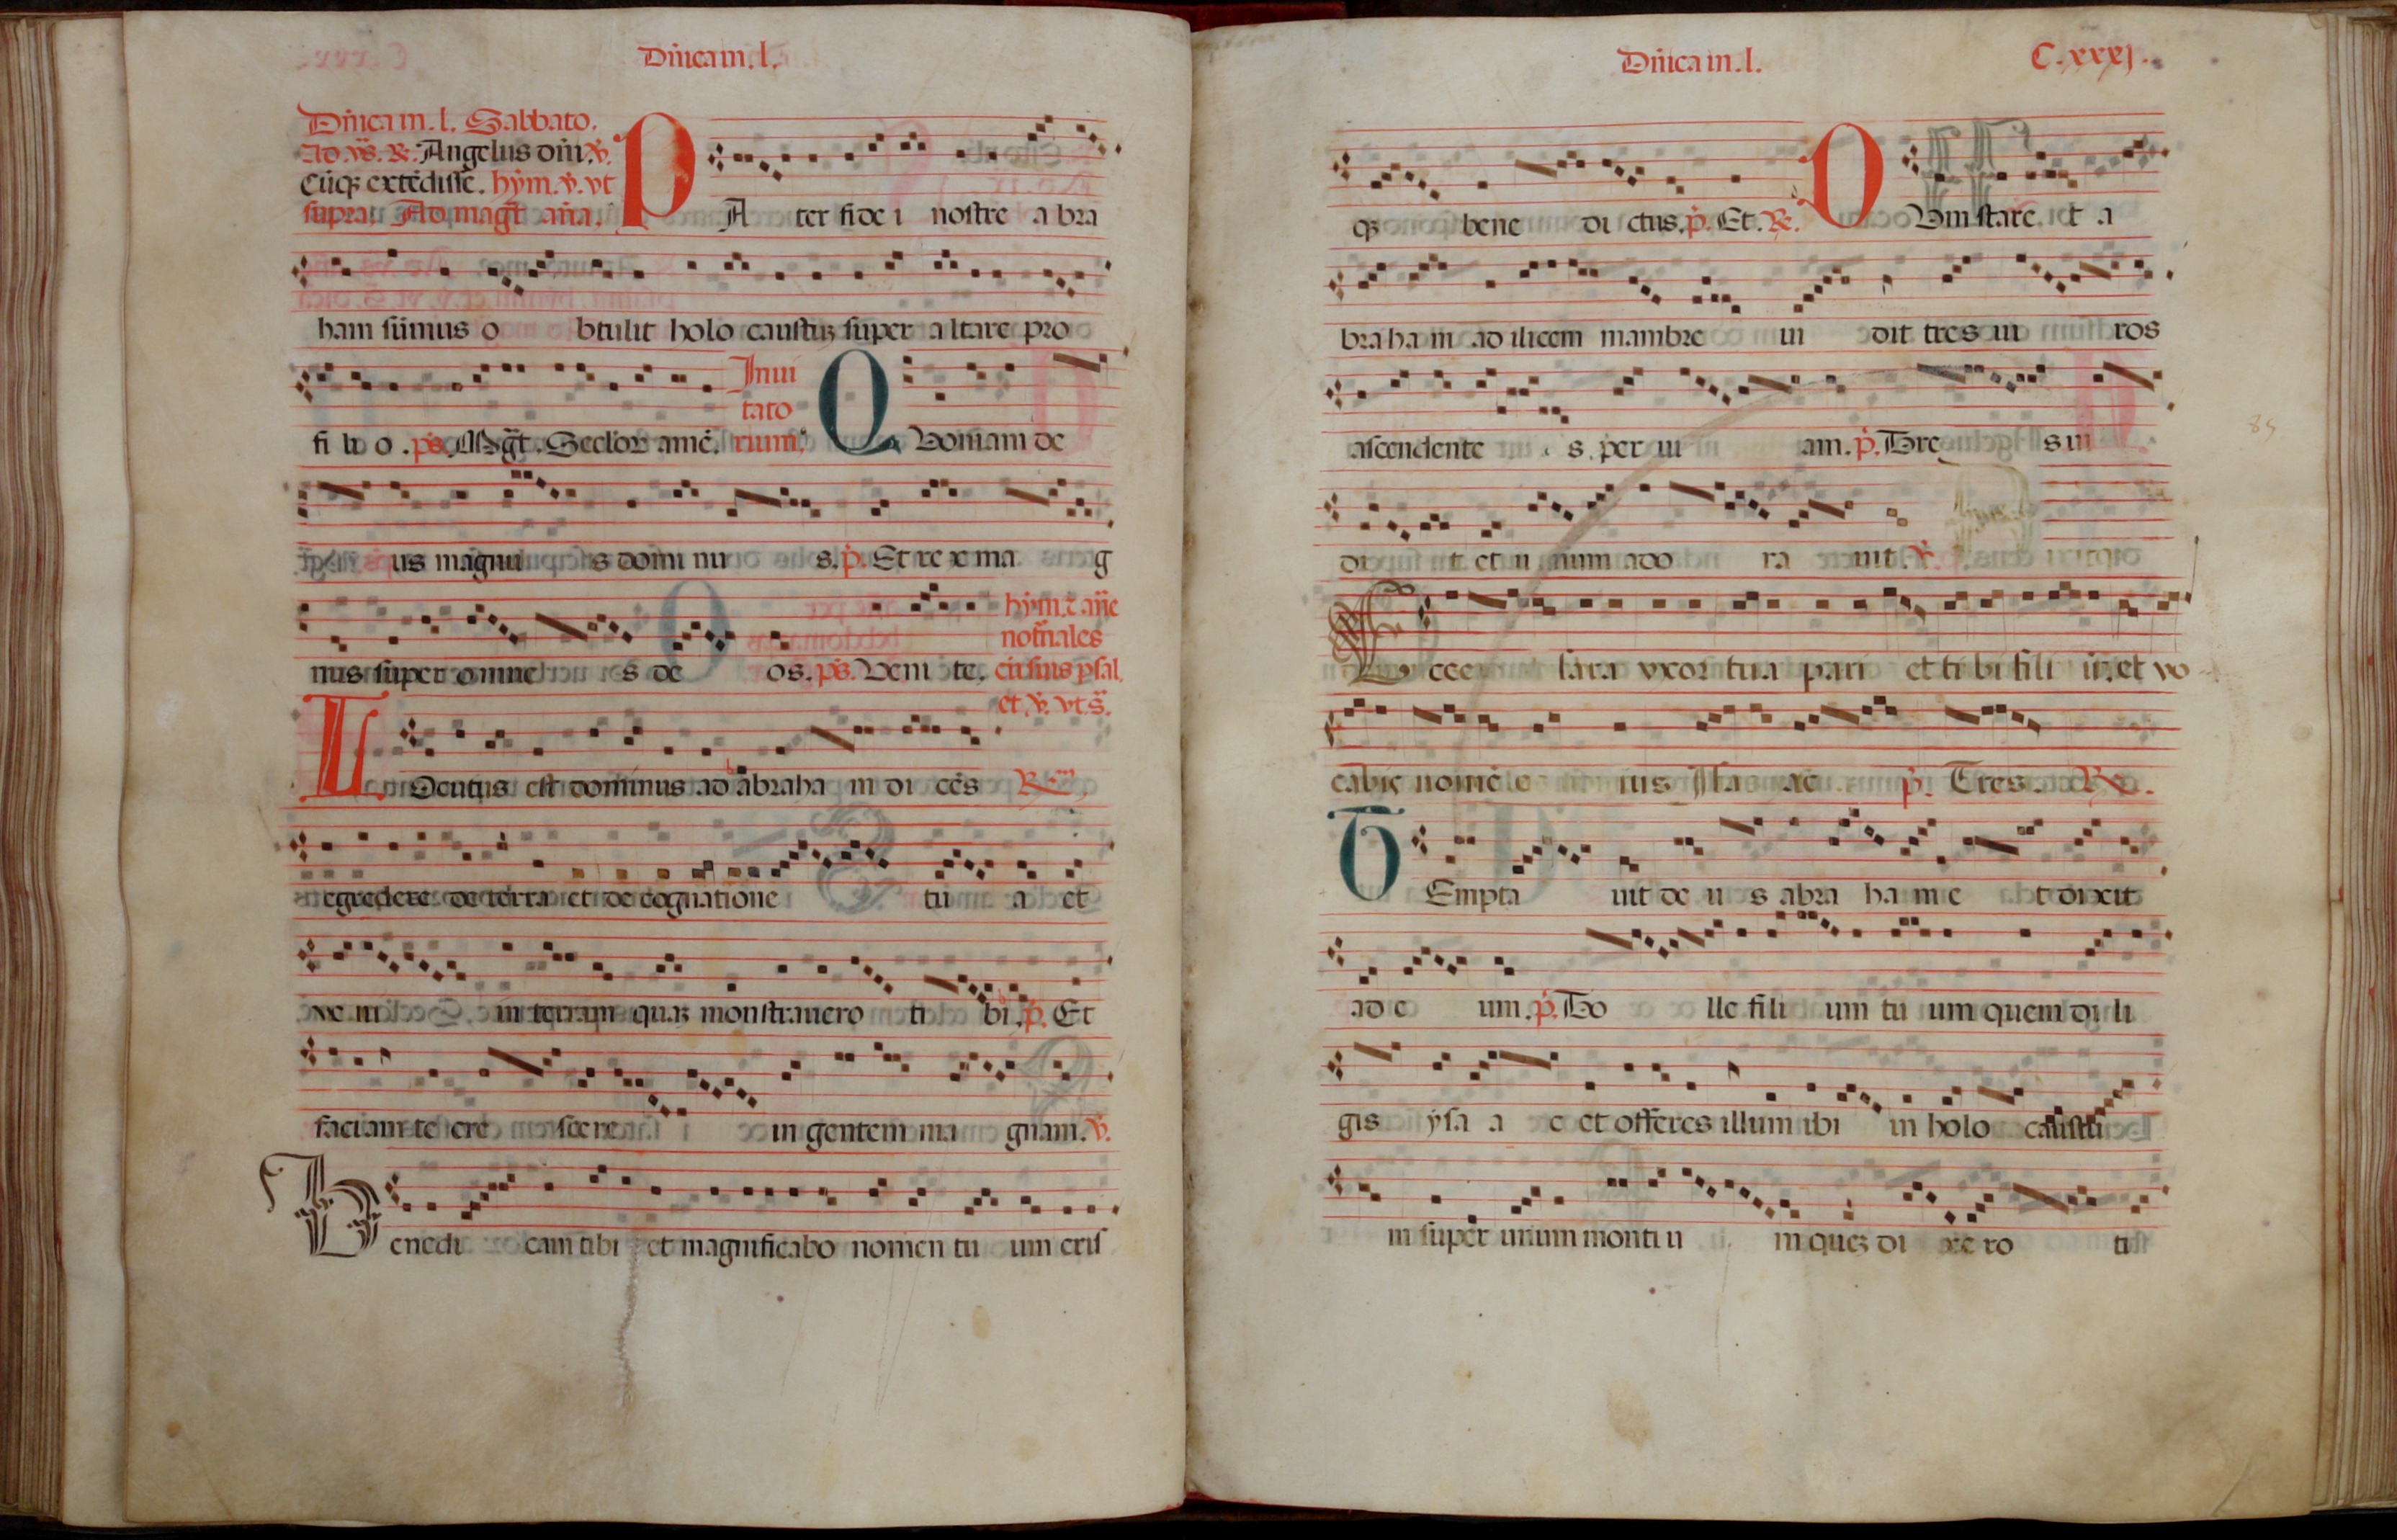 Dñica in .l.
Dñica in .l. Sabbato.
Ad. vs̃. R. Angelus dñi. v̇.
Cũq; extẽdisse. hẏm. v̇. vt
supra. Ad magt̃ aña.
PA ter fide i nostre a bra
ham sũmus o btulit holo caustuʒ super altare pro
fi li o . ps. Magt̃. Seclor amẽ. Inui
tato
rium.
QVoniam de
us magnu s domi nu s. p̃. Et re x ma g
nus super omne s de os. ps. Veni te. hẏm. ⁊ añe
notr̃nales
cursus psal.
et. v̇. vt. s̃.
LOcutus est dominus ad abraha m di cẽs R.
egredere de terra et de cognatione tu a et
ve ni in terram quaʒ monstrauero ti bi. p̃. Et
faciam te cre scere in gentem ma gnam. v̇.
Benedi cam tibi et magnificabo nomen tu um eris
Dñica in .l. C.xxxj.
q; bene di ctus. p̃. Et. R. DVm staret a
braha m ad ilicem mambre ui dit tres ui ros
ascendente s. per ui am. p̃. Tre s ui
di t et u num ado ra uit. v̇.
Ecce sara vxor tua pari et ti bi fili ũ. et vo
cabis nomẽ e ius Isa ac p̃. Tres. R.
TEmpta uit de u s abra ha m e t dixit
ad e um. p̃. To lle fili um tu um quem di li
gis ẏsa a c et offeres illum ibi in holo caustu
m super unum montiu m queʒ di xe ro ti
89